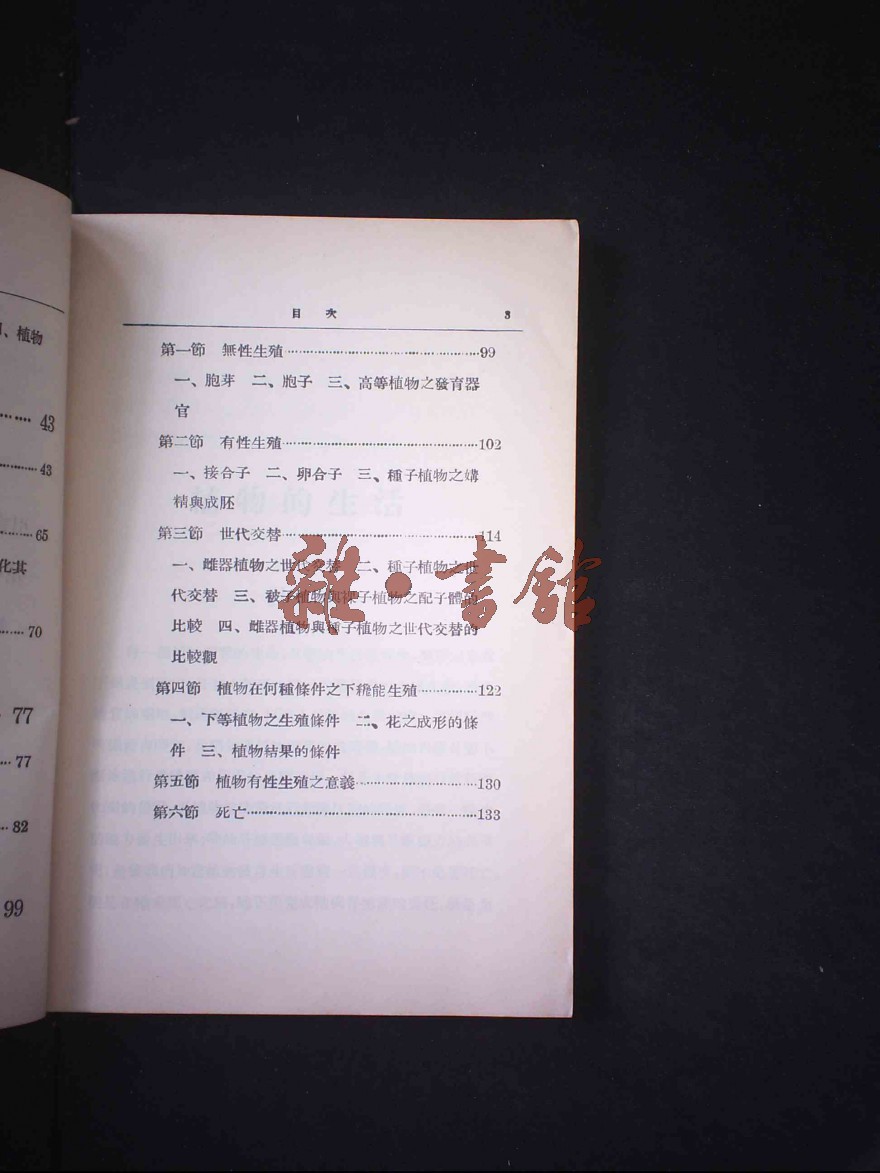 、植物
43
43
65
化其
70
77
77
82
99
目 次 3
第一節 無性生殖 99
一、胞芽 二、胞子 三、高等植物之發育器
官
第二節 有性生殖 102
一、接合子 二、卵合子 三、種子植物之媾
精與成胚
第三節 世代交替 114
一、雌器植物之世代交替 二、種子植物之世
代交替 三、被子植物與裸子植物之配子體的
比較 四、雌器植物與種子植物之世代交替的
比較觀
第四節 植物在何種條件之下纔能生殖 122
一、下等植物之生殖條件 二、花之成形的條
件 三、植物結果的條件
第五節 植物有性生殖之意義 130
第六節 死亡 133
物的生活
雜·書館